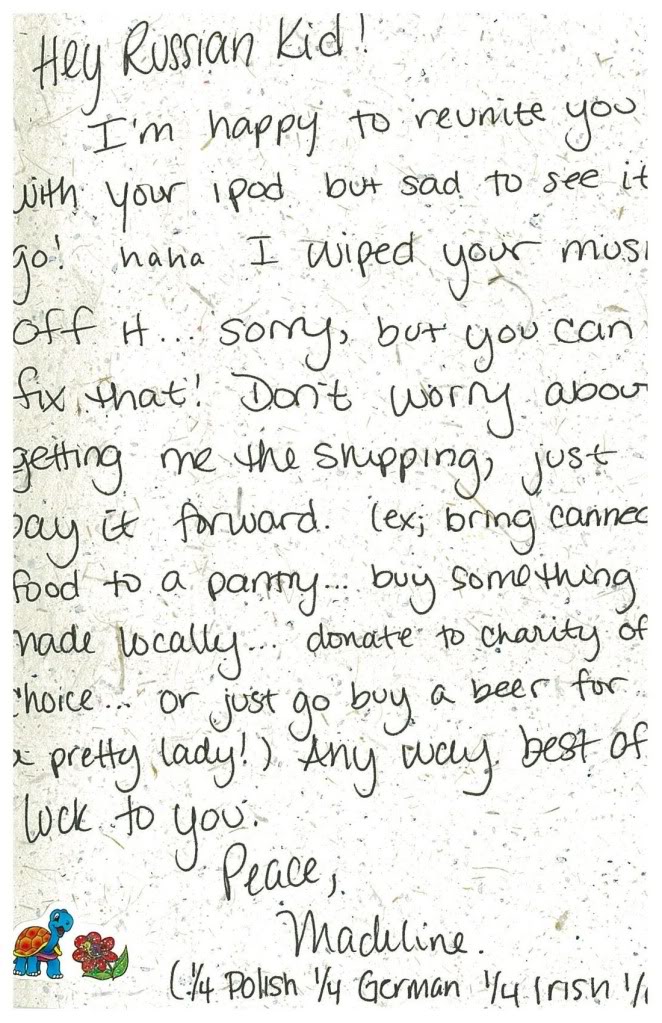 Hey Russian Kid!
I'm happy to reunite you
with your ipod but sad to see it
go! haha I wiped your musi
off it... sorry, but you can
fix that! Don't worry abou
getting me the shipping, just
pay it forward. (ex; bring canned
food to a pantry... buy something
made locally... donate to charity of
choice... or just go buy a beer for
a pretty lady!) Any way. best of
luck to you.
Peace,
Madeline.
(1/4 Polish 1/4 German 1/4 Irish 1/